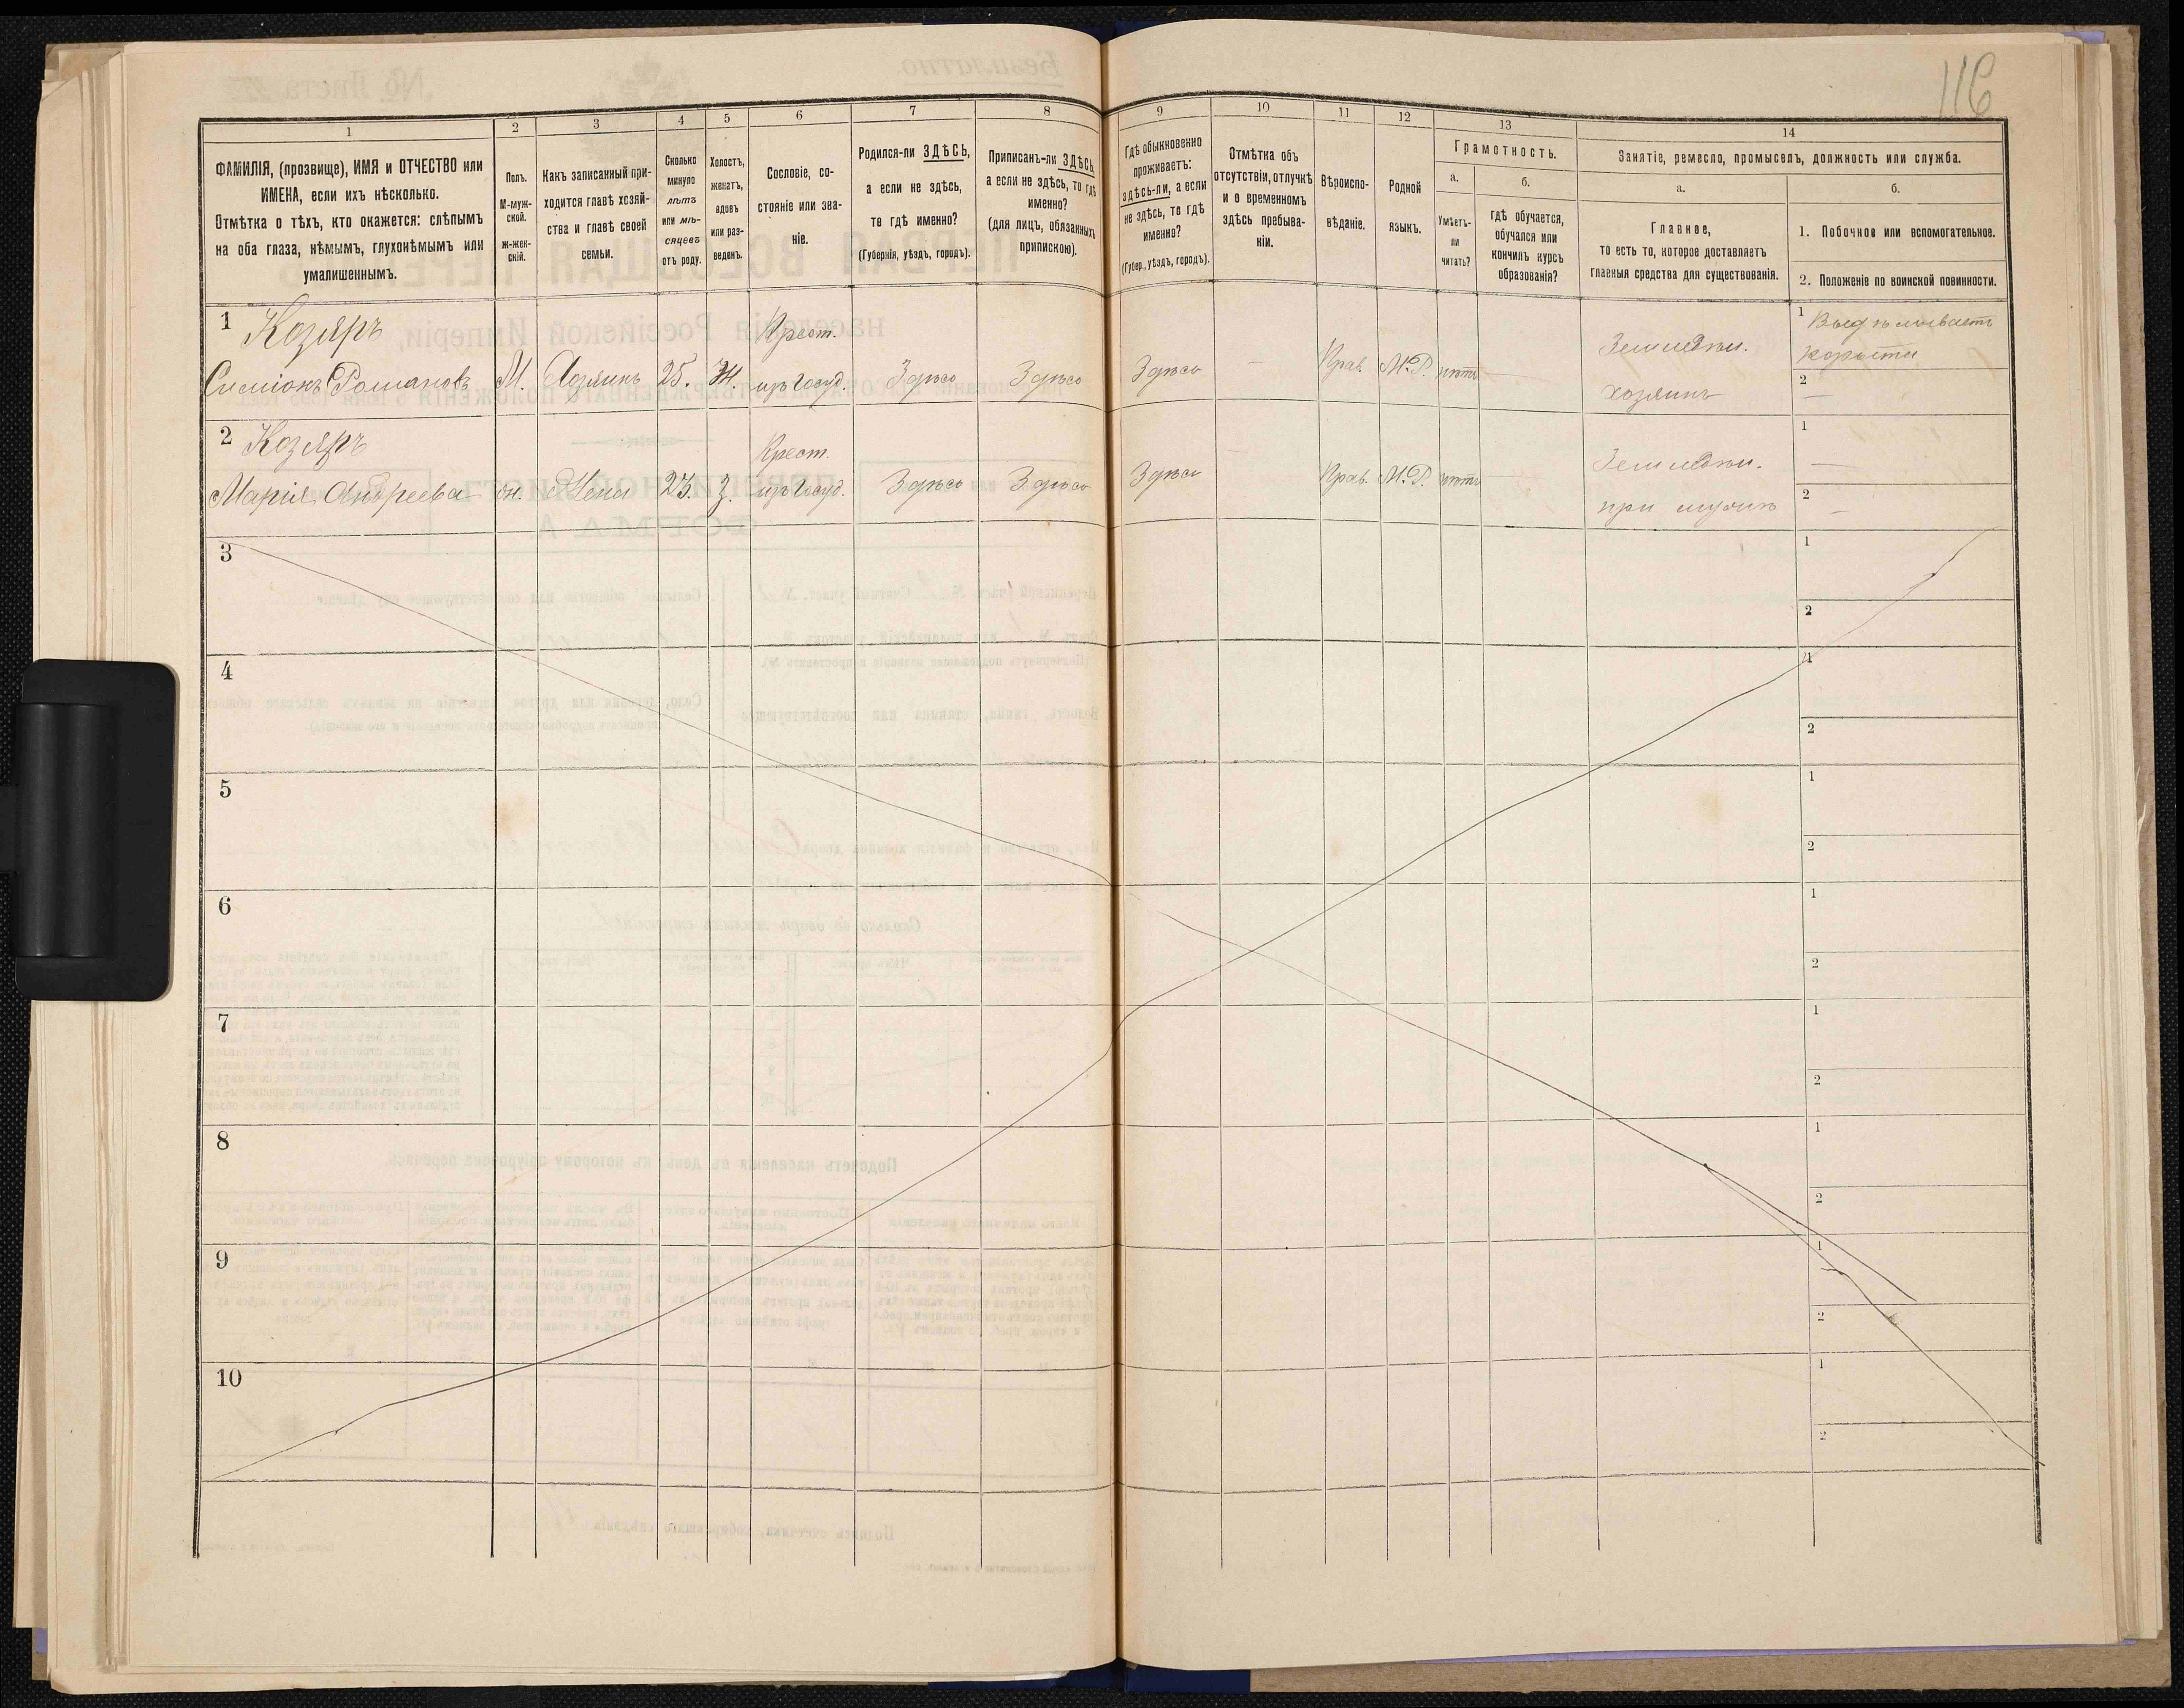 116
1
2
3
4
5
6
7
8
9
10
11
12
13
14
ФАМИЛІЯ, (прозвище), ИМЯ и ОТЧЕСТВО или
ИМЕНА, если ихъ нѣсколько.
Отмѣтка о тѣхъ, кто окажется: слѣпымъ
на оба глаза, нѣмымъ, глухонѣмымъ или
умалишеннымъ.
Полъ.
М-муж-
ской.
Ж-жен-
скій.
Какъ записанный при-
ходится главѣ хозяй-
ства и главѣ своей
семьи.
Сколько
минуло
лѣтъ
или мѣ-
сяцевъ
отъ роду.
Холостъ,
женатъ,
вдовъ
или раз-
веденъ.
Сословіе, со-
стояніе или зва-
ніе.
Родился-ли ЗДѢСЬ,
а если не здѣсь,
то гдѣ именно?
(Губернія, уѣздъ, городъ).
Приписанъ-ли ЗДѢСЬ,
а если не здѣсь, то гдѣ
именно?
(для лицъ, обязанныхъ
припискою).
Гдѣ обыкновенно
проживаетъ:
здѣсь-ли, а если
не здѣсь, то гдѣ
именно?
(Губер., уѣздъ, городъ).
Отмѣтка объ
отсутствіи, отлучкѣ
и о временномъ
здѣсь пребыва-
ніи.
Вѣроиспо-
вѣданіе.
Родной
языкъ.
Грамотность.
а.
Умѣетъ-
ли
читать?
б.
Гдѣ обучается,
обучался или
кончилъ курсъ
образованія?
Занятіе, ремесло, промыселъ, должность или служба.
а.
Главное,
то есть то, которое доставляетъ
главныя средства для существованія.
б.
1. Побочное или вспомогательное.
2. Положеніе по воинской повинности.
1 Козяръ
Симіонъ Романовъ М. Хозяинъ 25. Ж. Крест. изъ госуд. Здѣсь Здѣсь Здѣсь — Прав. М.Р. нѣтъ — Земледѣл. хозяинъ
1 Выдѣлываетъ корыта
2 —
2 Козяръ
Марія Андреева Ж. Жена 23. З. Крест. изъ госуд. Здѣсь Здѣсь Здѣсь Прав. М.Р. нѣтъ Земледѣл. при мужѣ
1 —
2 —
3
1
2
4
1
2
5
1
2
6
1
2
7
1
2
8
1
2
9
1
2
10
1
2